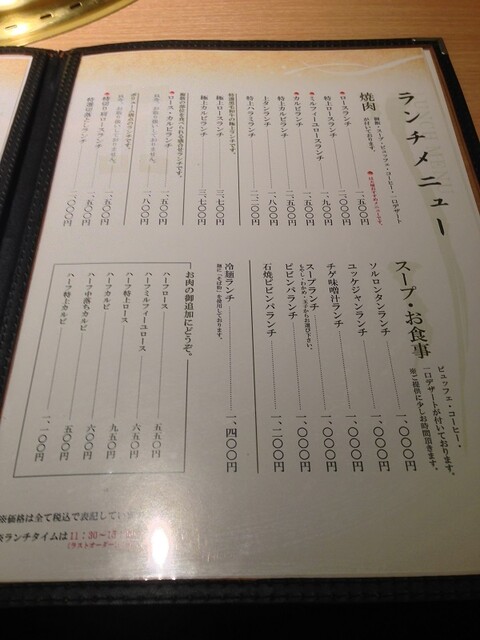 ランチメニュー
焼肉
御飯・スープ・ビュッフェ・コーヒー・一口デザート
お付いております。
ロースランチ 一、五〇〇円
特上ロースランチ 一、九〇〇円
ミルフィーユロースランチ 一、五〇〇円
カルビランチ 一、五〇〇円
特上カルビランチ
上タンランチ 一、八〇〇円
特上ハラミランチ 二、二〇〇円
極上ロースランチ 三、七〇〇円
極上カルビランチ 三、七〇〇円
ロース・カルビランチ 一、五〇〇円
一、八〇〇円
一、五〇〇円
一、五〇〇円
一、〇〇〇円
スープ・お食事
ビュッフェ・コーヒー・
一口デザートが付いております。
※ご提供に少しお時間頂きます。
ソルロンタンランチ 一、〇〇〇円
ユッケジャンランチ 一、〇〇〇円
チゲ味噌汁ランチ 一、〇〇〇円
スープランチ 一、〇〇〇円
もやし・わかめ・玉子からお選び下さい。
ビビンバランチ 一、〇〇〇円
石焼ビビンバランチ 一、二〇〇円
冷麺ランチ 一、四〇〇円
麺に「そば粉」を使用しております。
お肉の御追加にどうぞ。
ハーフロース 五五〇円
ハーフミルフィーユロース 六五〇円
ハーフ特上ロース 九五〇円
ハーフ中落ちカルビ 六〇〇円
ハーフカルビ 五〇〇円
ハーフ特上カルビ 一、一〇〇円
※価格は全て税込で表記してい
ランチタイムは11:30~
(ラストオーダー